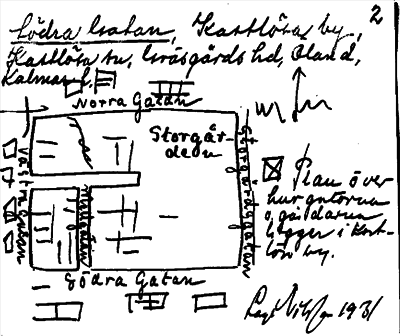 2
Södra Gatan, Kastlösa by,
Kastlösa sn, Gräsgårds hd, Öland,
Kalmar l.
Norra Gatan
Storgår-
den
Västra Gatan
Mellgatan
Storgårdsgatan
Södra Gatan
Plan över
hur gatorna
o. gårdarna
ligger i Kast-
lösa by.
1931